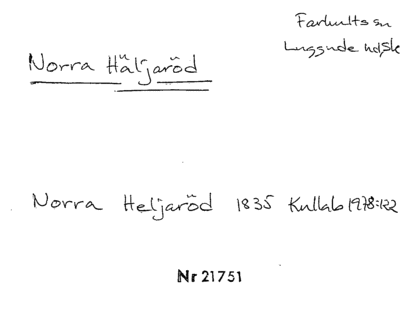 Farhults sn
Luggude hd, Sk
Norra Häljaröd
Norra Heljaröd 1835 Kullab 1978:122
Nr 21751